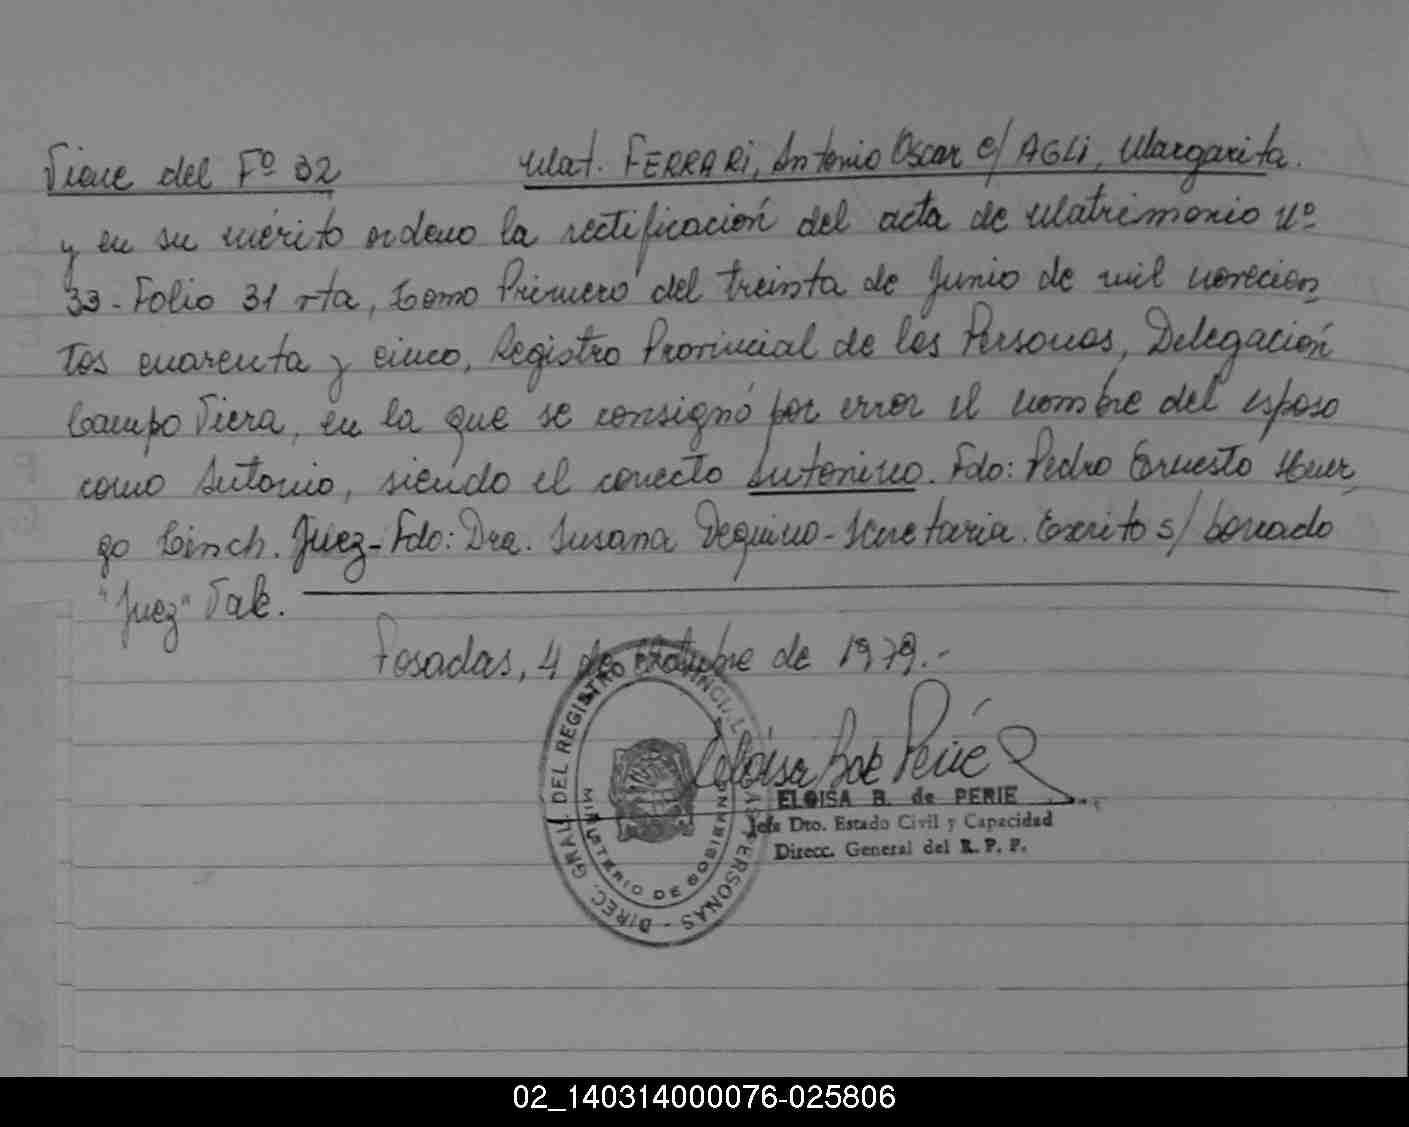 Viene del Fº 32 Mat. FERRARI, Antonio Oscar c/ AGLI, Margarita.
y en su mérito ordeno la rectificación del acta de Matrimonio Nº
33 - Folio 31 vta, tomo Primero del treinta de Junio de mil novecien
tos cuarenta y cinco, Registro Provincial de las Personas, Delegación
Campo Viera, en la que se consignó por error el nombre del esposo
como Antonio, siendo el correcto Antonino. Fdo: Pedro Ernesto
Juez - Fdo: Dra. Susana Secretaria. Escrito s/ borrado
"Juez" Vale.
Posadas, 4 de Octubre de 1979.-
DIREC. GRAL. DEL REGISTRO PROVINCIAL DE LAS PERSONAS -
MINISTERIO DE GOBIERNO
ELOISA B. de PERIE
Jefa Dto. Estado Civil y Capacidad
Direcc. General del R. P. P.
02_140314000076-025806